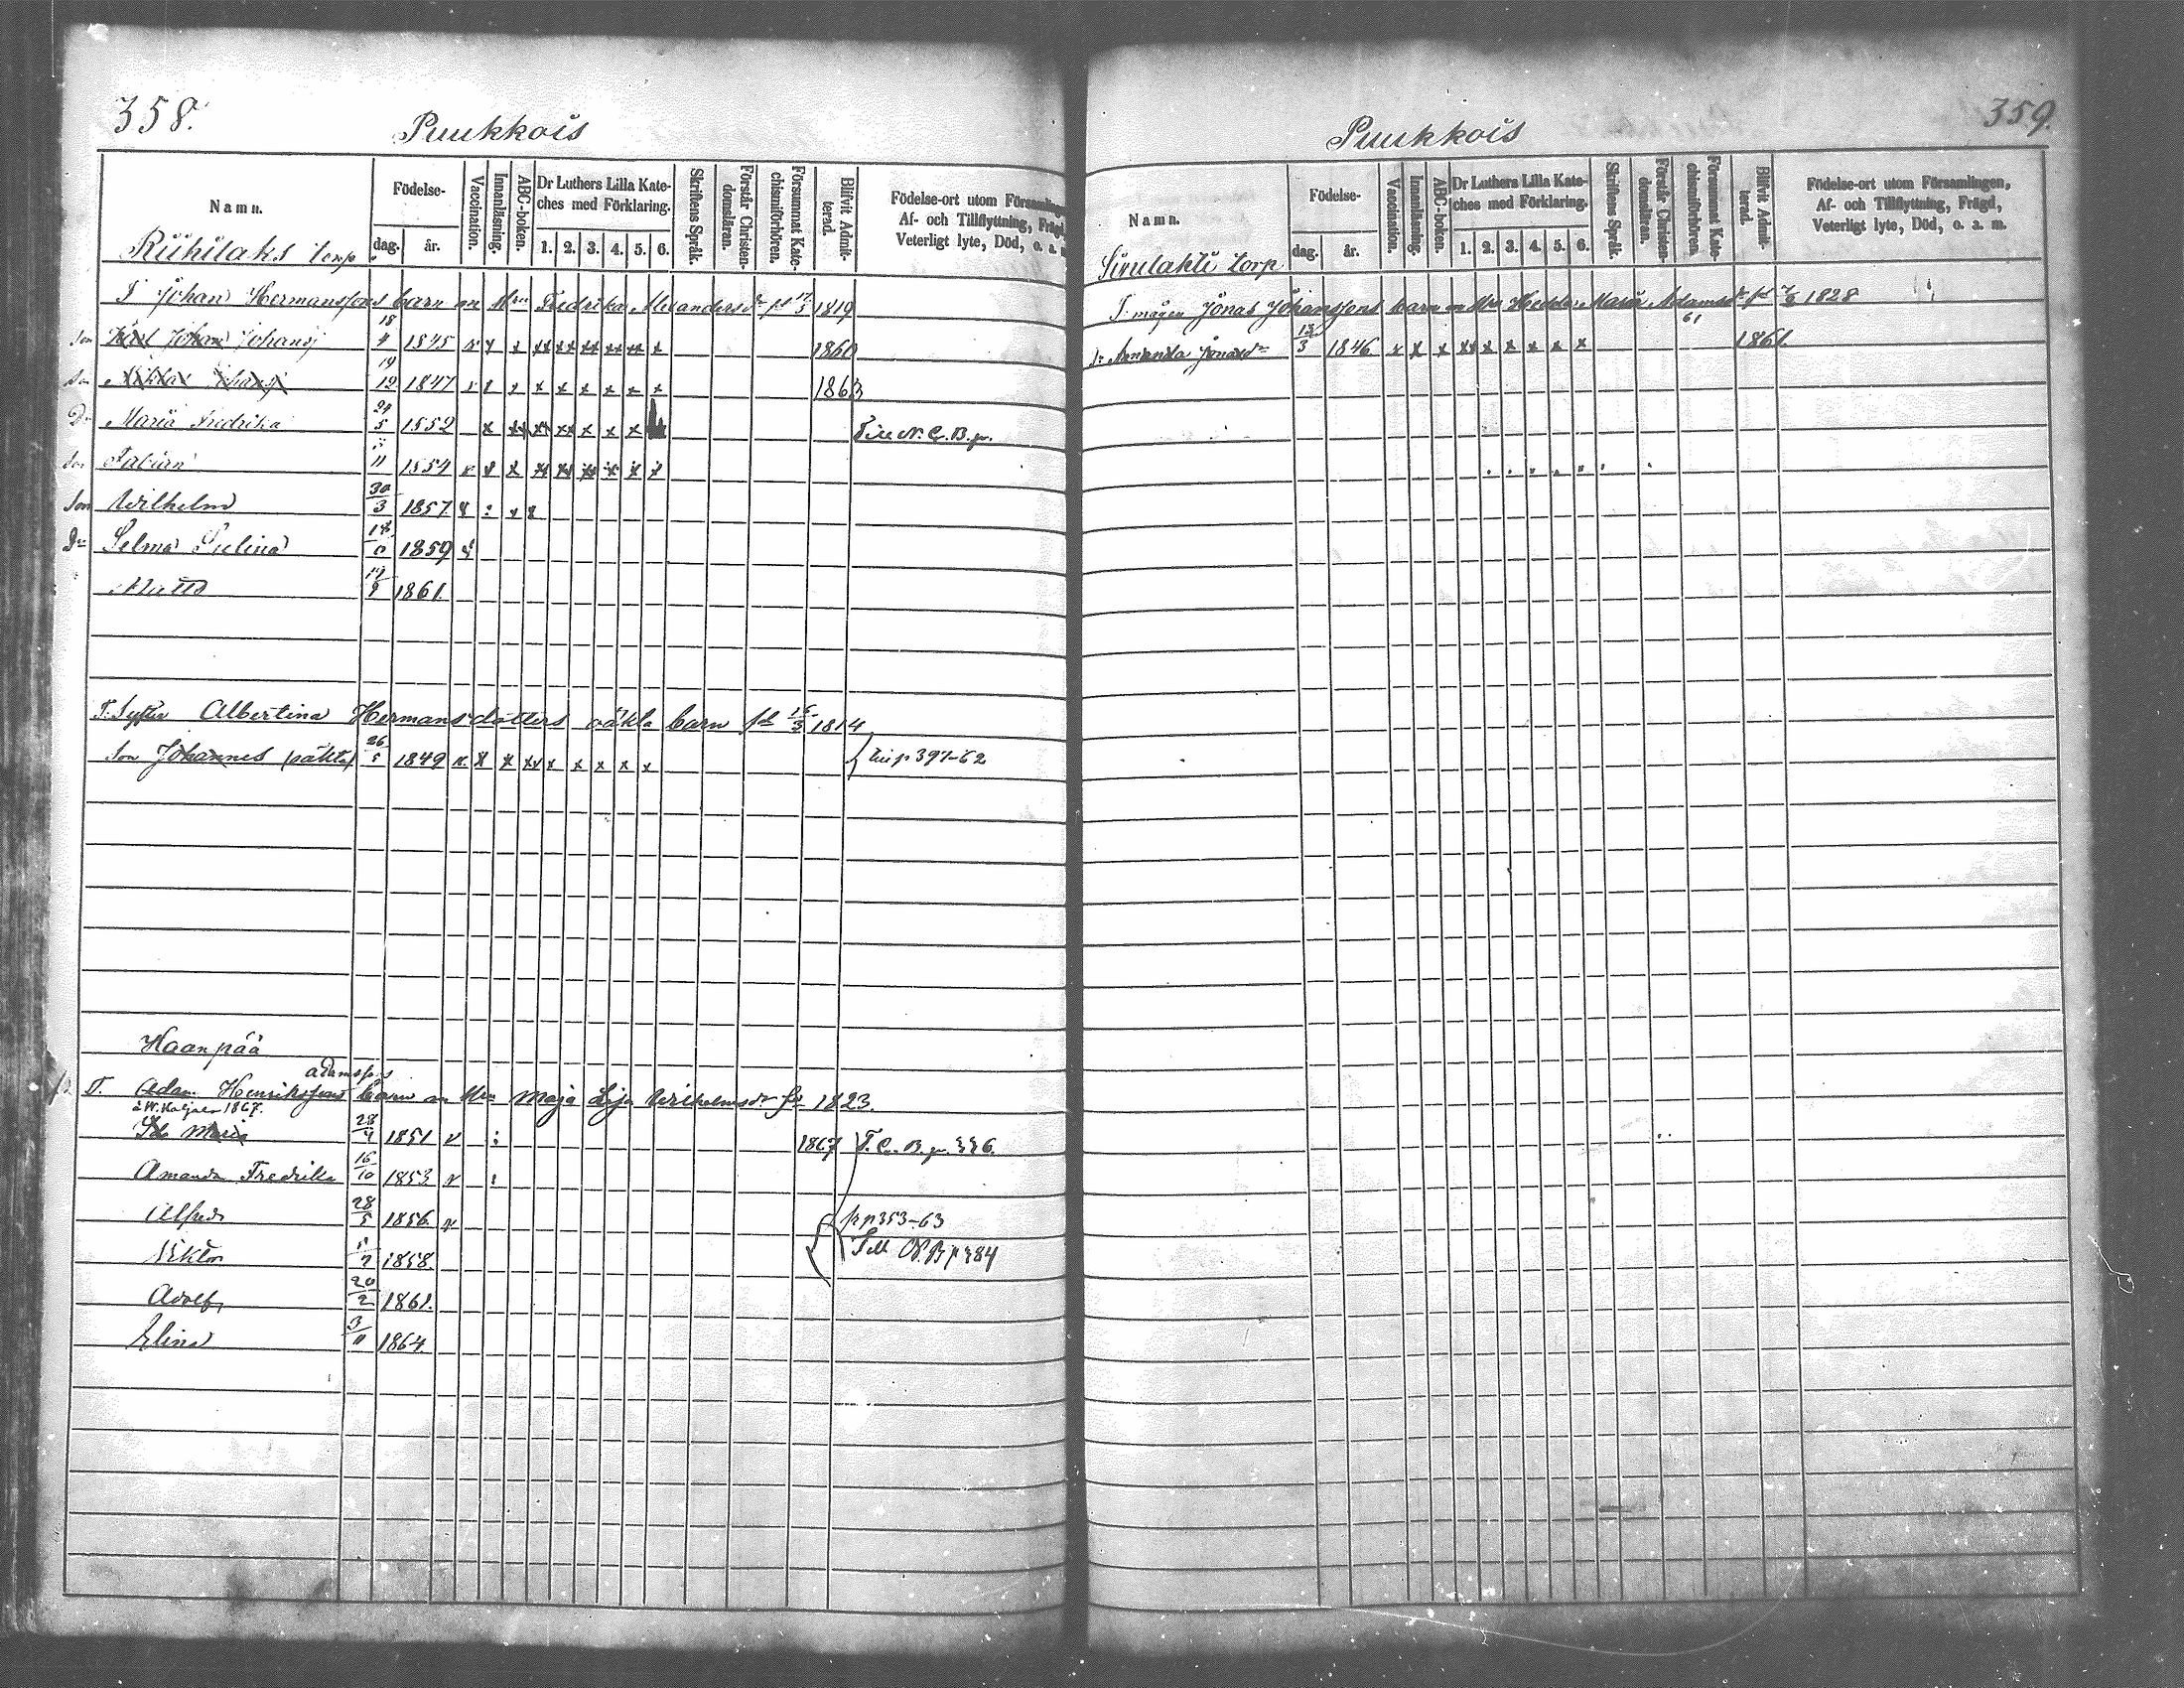 358.
Puukkois
Namn.
Födelse-
dag.
år.
Vaccination.
Innanläsning.
ABC-boken.
Dr Luthers Lilla Kate-
ches med Förklaring.
1. 2. 3. 4. 5. 6.
Skriftens Språk.
Förstår Christen-
domsläran.
Försummat Kate-
chismiförhören.
Blifvit Admit-
terad.
Födelse-ort utom Församlingen
Af- och Tillflyttning, Frägd,
Veterligt lyte, Död, o. a. m.
Riihilaks torp
T Johan Hermanssons barn m Hru Fredrika Alexandersdr fd 17/3 1819
Son Karl Johan Johansj 18/4 1845 v x x xx xx xx xx xx x 1860
Son 19/12 1847 x x x x x x x x 1863
Dr Maria Fredrika 24/5 1852 x xx xx xx x x x Till N. C. B. p.
Son Fabian 11 1854 v x x xx xx xx x x x
Son Wilhelm 30/3 1857
Dr Selma 18 1859
19/9 1861.
T. Syster Albertina Hermansdotters oäkta barn fd 16/3 1814
Son Johannes (oäkta) 26/5 1849 v. x x xx x x x x x 397-62
Haanpää
Adamssons
T. Adam Henrikssons barn m Hru Maja Lisa Wilhelmsdr fd 1823.
1867.
Ida Maria 28/4 1851 v : 1867 T. C. B. p.
Amanda Fredrika 16/10 1853 v :
Alfred 28/5 1856 v fr p 353-63
Viktor 1858.
Adolf 20/2 1861.
Elina 3/11 1864.
359.
Puukkois
Namn.
Födelse-
dag.
år.
Vaccination.
Innanläsning.
ABC-boken.
Dr Luthers Lilla Kate-
ches med Förklaring.
1. 2. 3. 4. 5. 6.
Skriftens Språk.
Förstår Christen-
domsläran.
Försummat Kate-
chismiförhören.
Blifvit Admit-
terad.
Födelse-ort utom Församlingen,
Af- och Tillflyttning, Frägd,
Veterligt lyte, Död, o. a. m.
torp
T. mågen Jonas Johanssons barn m Hru Hedda Maria Adamsdr fd 1828
61
Dr Amanda Jonasdr 13/3 1846 x x x xx x x x x x 1861